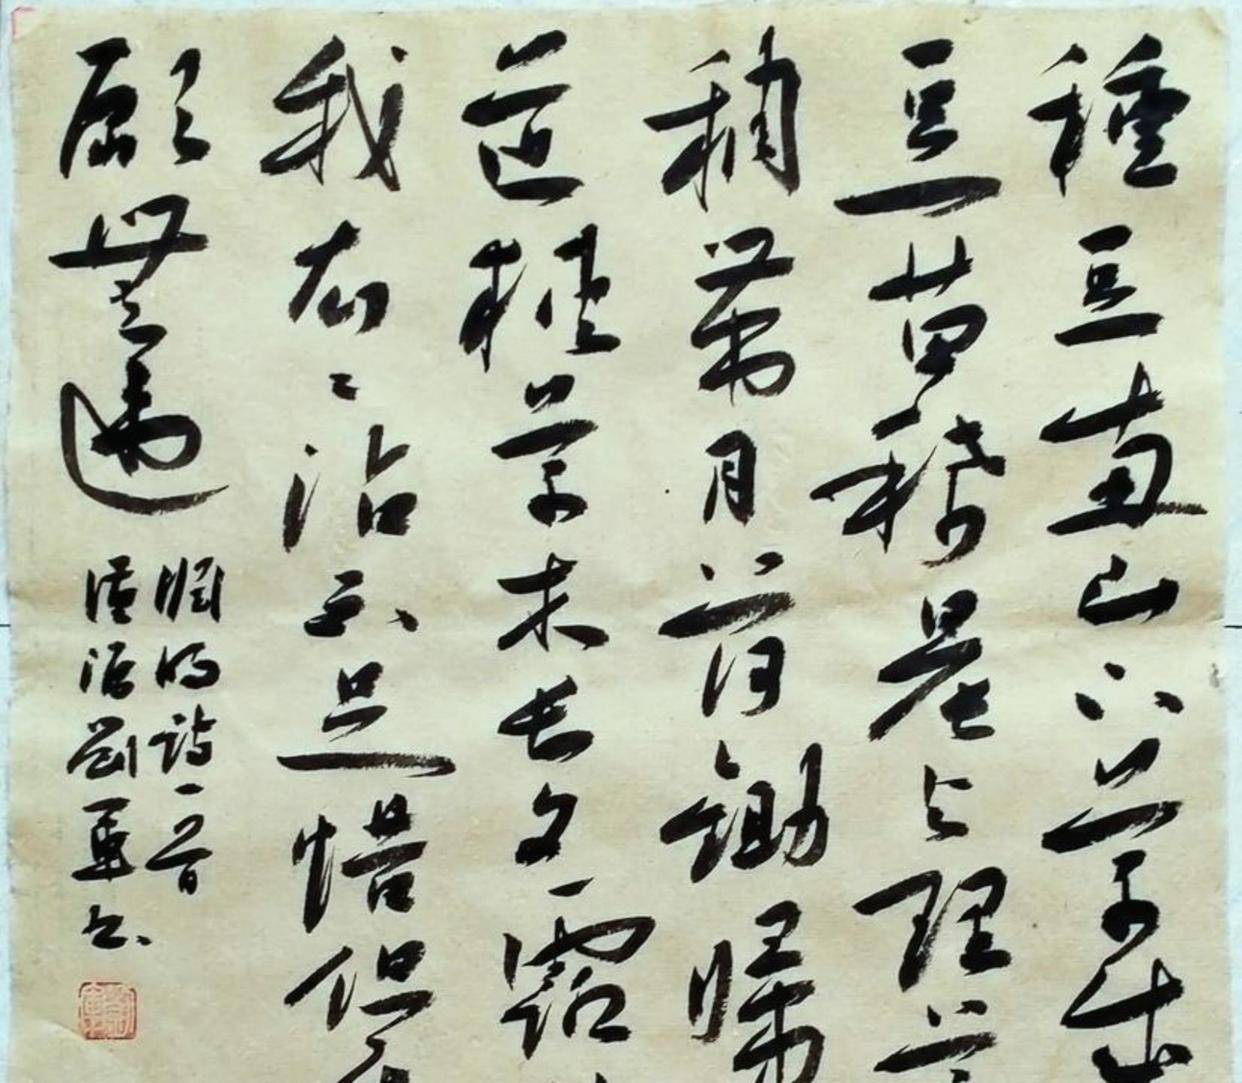 種豆南山下草盛
豆苗稀晨興理荒
穢帶月荷鋤歸
道狹草木長夕露
我衣〻沾不足惜但
願無違
淵明詩一首
劉軍书